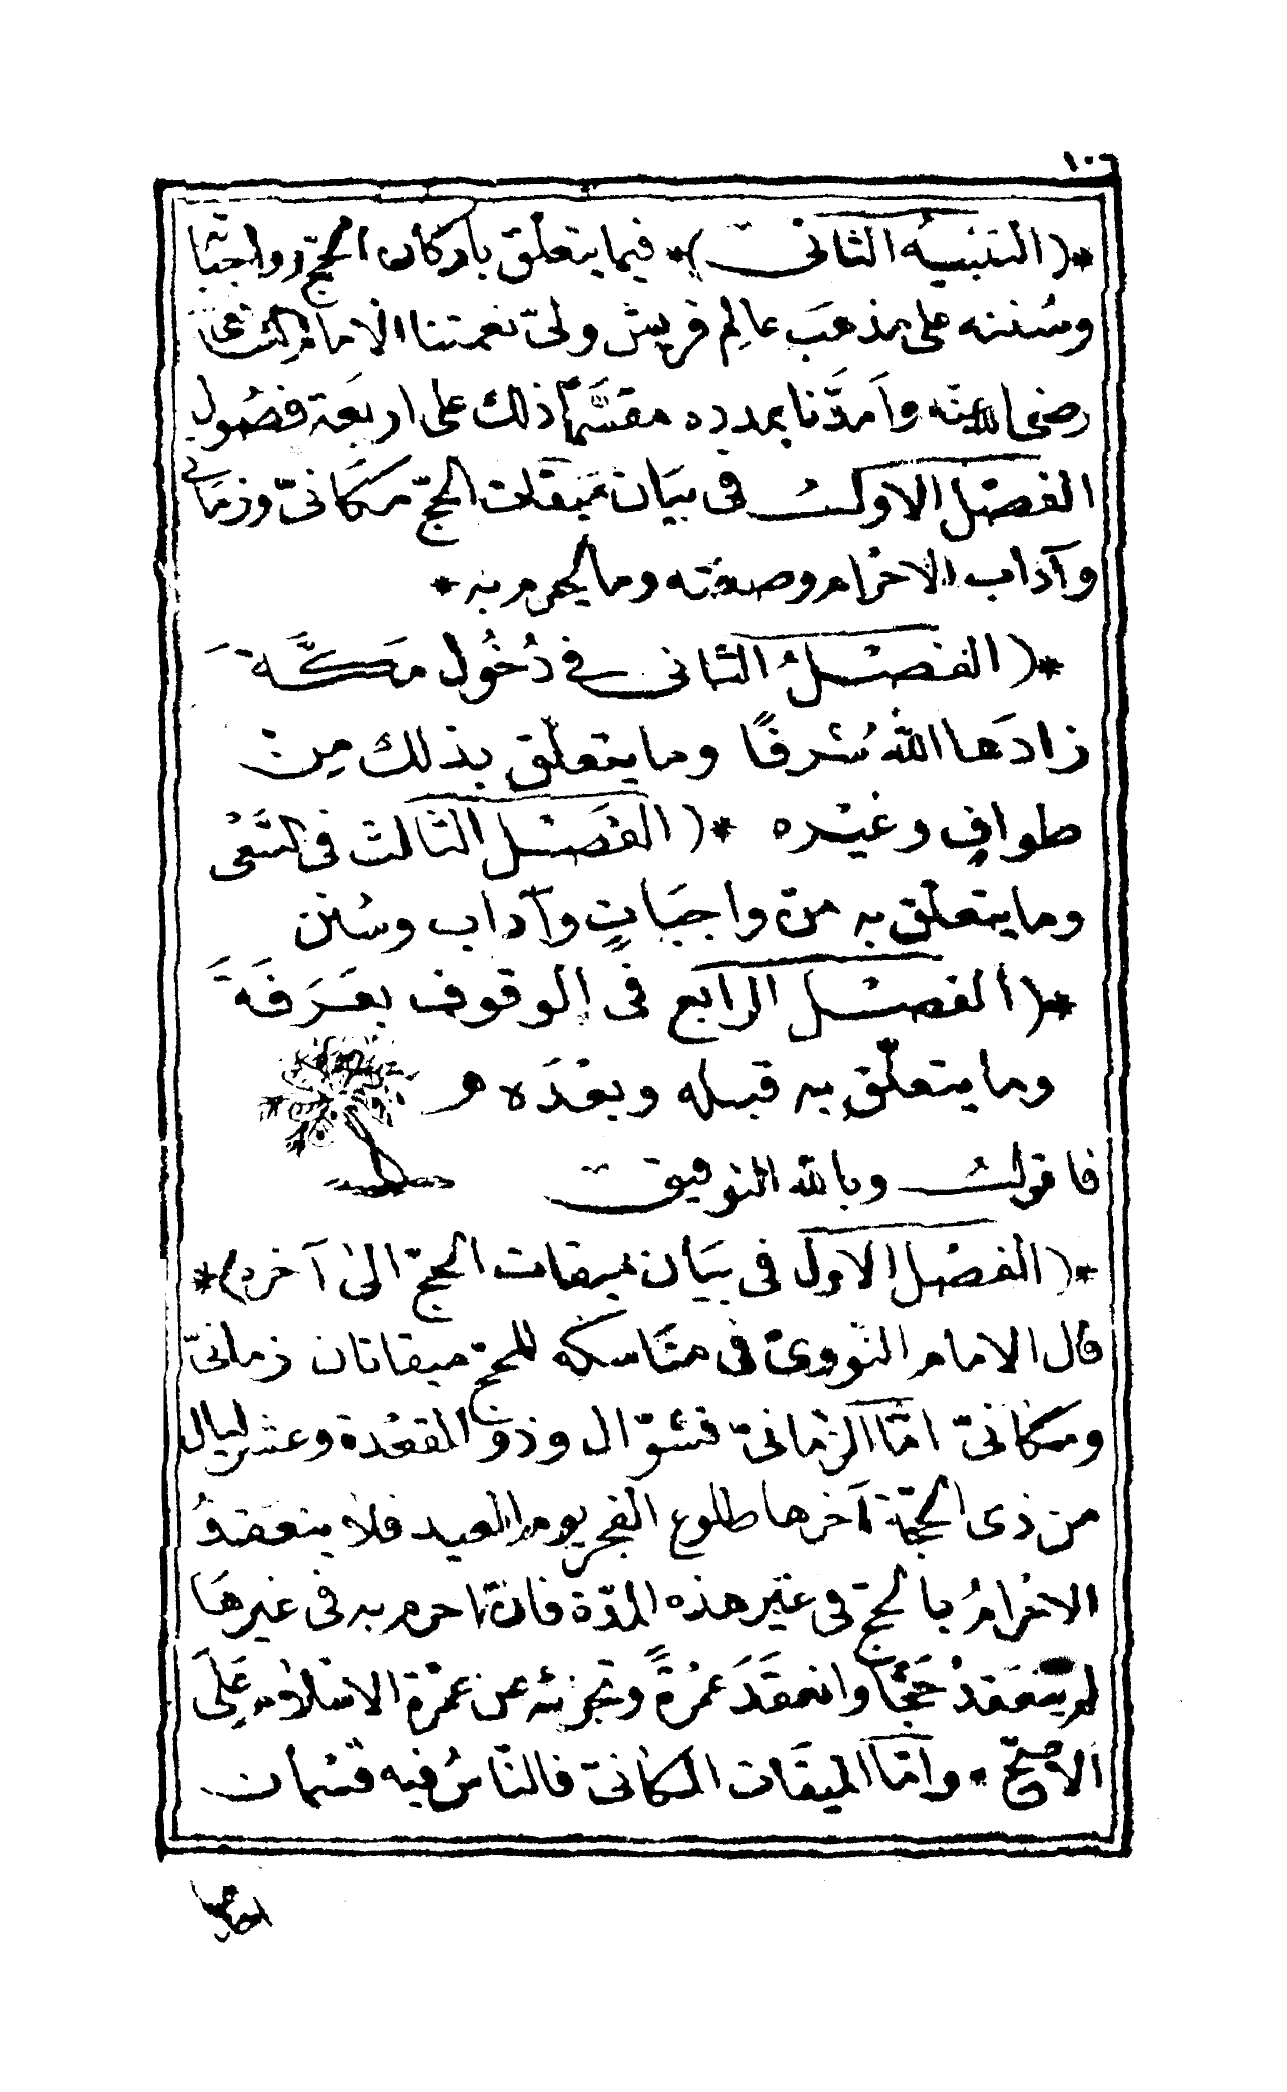 ١٠٦
*( التنبيه الثانى )* فيما يتعلّق باركان الحجّ وواجباته
وسُننه على مذهَب عالِم قريش ولىّ نعمتنا الامام الشافعى
رضى الله عنه وَامدَّنا بمدده مقسَّمًا ذلك على اربعَة فصُول
الفصْل الاولُ فى بيَان ميقات الحجّ مكَانىّ وزمَانى
وآدَاب الاحْرام وصفته وما يحرم به *
*( الفصْلُ الثانى فى دُخُول مَكَّةَ
زادَهَا اللّهُ شرفًا وما يتعلّق بذلك مِنْ
طوافٍ وغيْره *( الفَصْل الثالث فى السَّعْى
وما يتعلّق به من واجبَاتٍ وآداب وسُنن
*( الفصْل الرابع فى الوقوف بعَرَفَةَ
وما يتعلّق به قبله وبعْدَه هـ
فاقولُ وبالله التوفيق
*( الفصْل الاول فى بيَان ميقات الحجّ الىٰ آخره )*
قال الامام النّووىّ فى منَاسكه للحجّ ميقاتان زمانىّ
ومكانىّ امّا الزمانىّ فشوّال وذو القعْدة وعشر ليال
من ذى الحجّة آخرها طلوع الفجر يوم العيد فلا ينعَقدُ
الاحْرامُ بالحجّ فى غيْر هذه المدّة فان احرم به فى غيرهَا
لم ينعَقدْ حَجًّا وانعقَدَ عمُرْةً وتجزئه عن عمْرة الاسْلام عَلَى
الاصحّ * وامّا الميقَات المكانىّ فالنّاسُ فيه قسْمان